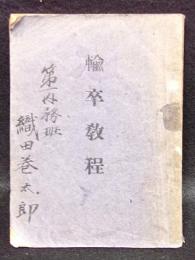 輸卒教程
第内務班
織田巻太郎